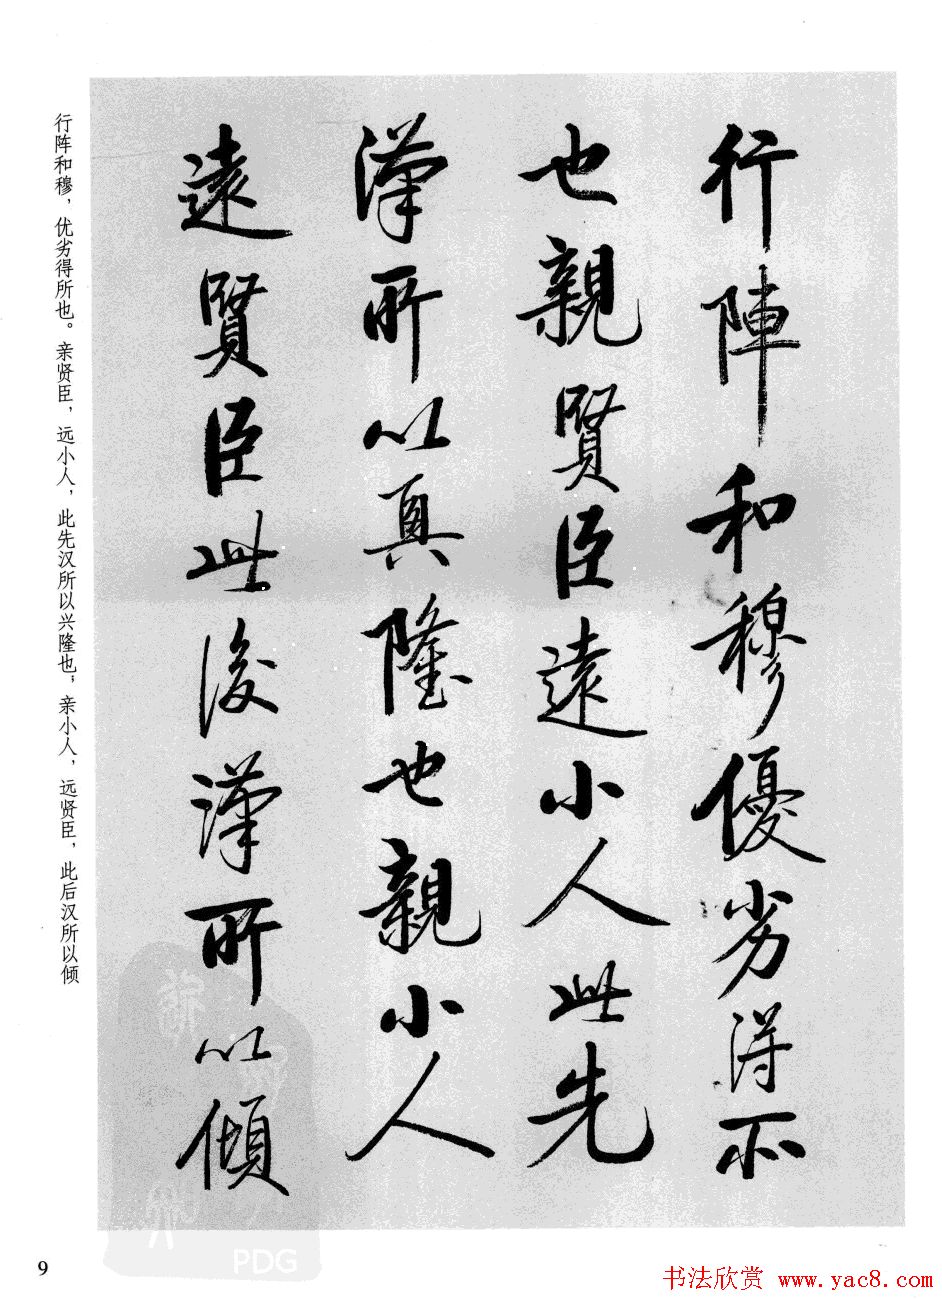 行陣和穆優劣得所
也親賢臣遠小人此先
漢所以興隆也親小人
遠賢臣此後漢所以傾
行阵和穆，优劣得所也。亲贤臣，远小人，此先汉所以兴隆也；亲小人，远贤臣，此后汉所以倾
9
PDG
书法欣赏 www.yac8.com